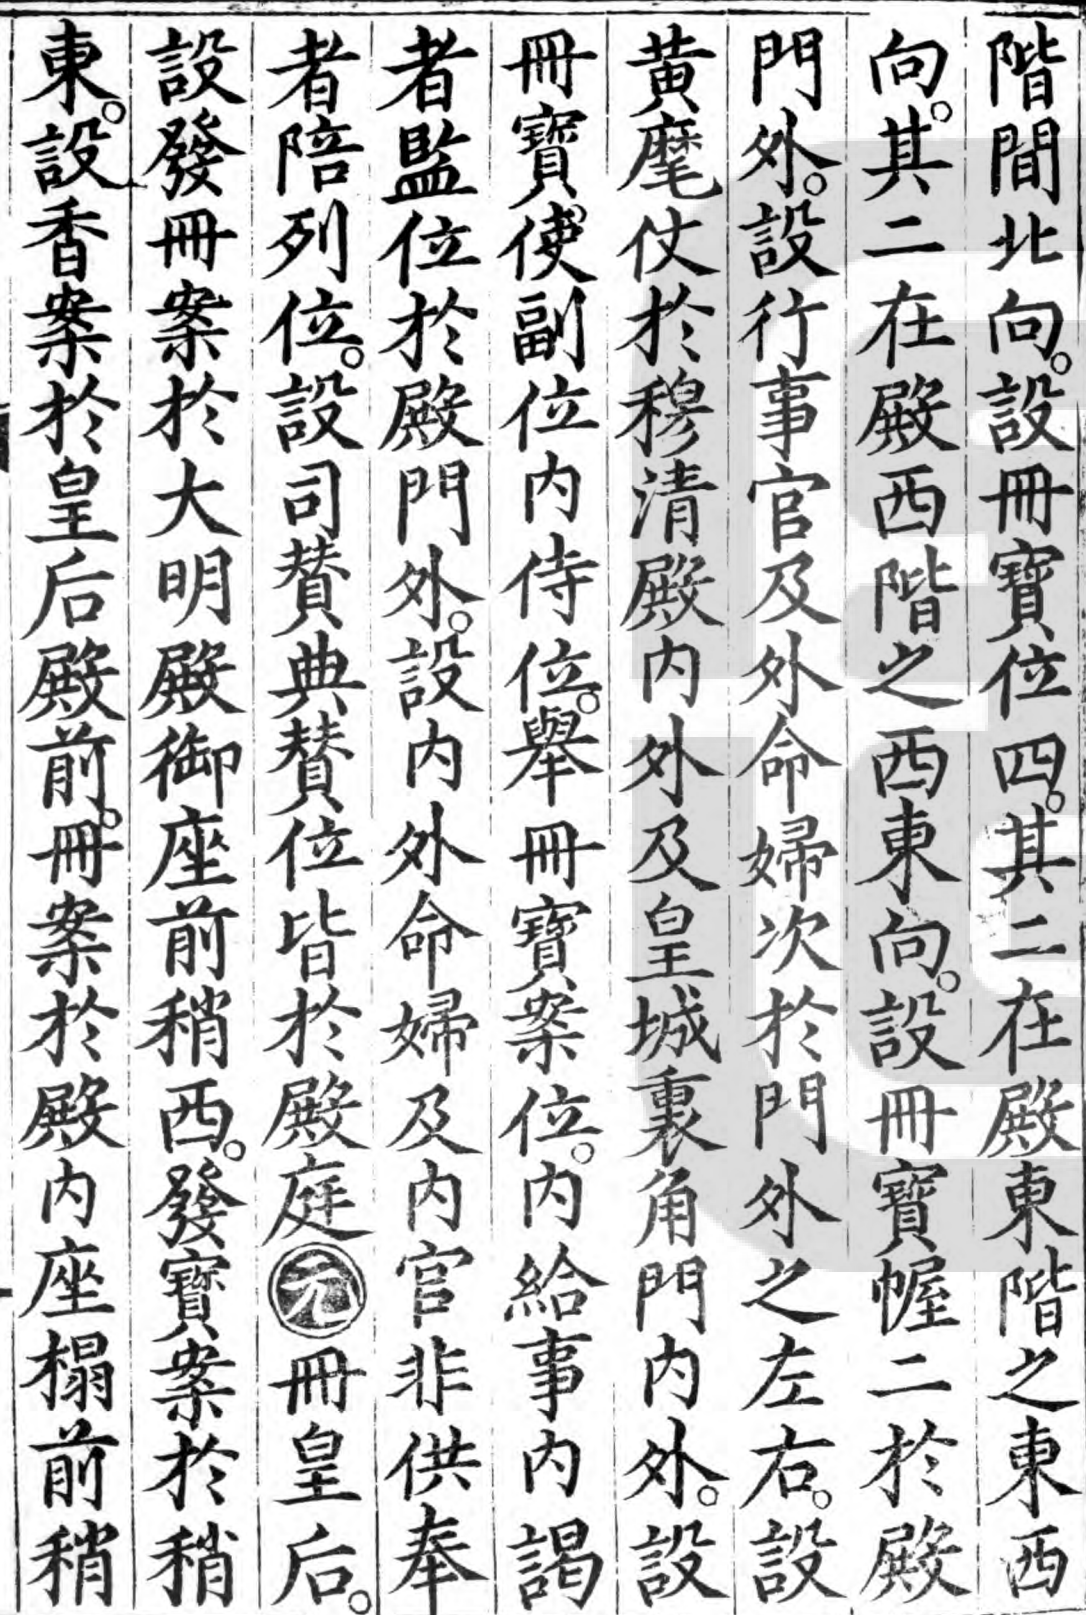 階間北向。設冊寶位四。其二在殿東階之東西
向。其二在殿西階之西東向。設冊寶幄二於殿
門外。設行事官及外命婦次於門外之左右。設
黄麾仗於穆清殿内外及皇城裏角門内外。設
冊寶使副位内侍位。舉冊寶案位。内給事内謁
者監位於殿門外。設内外命婦及内官非供奉
者陪列位。設司贊典贊位皆於殿庭元冊皇后。
設發冊案於大明殿御座前稍西。發寶案於稍
東。設香案於皇后殿前。冊案於殿内座榻前稍